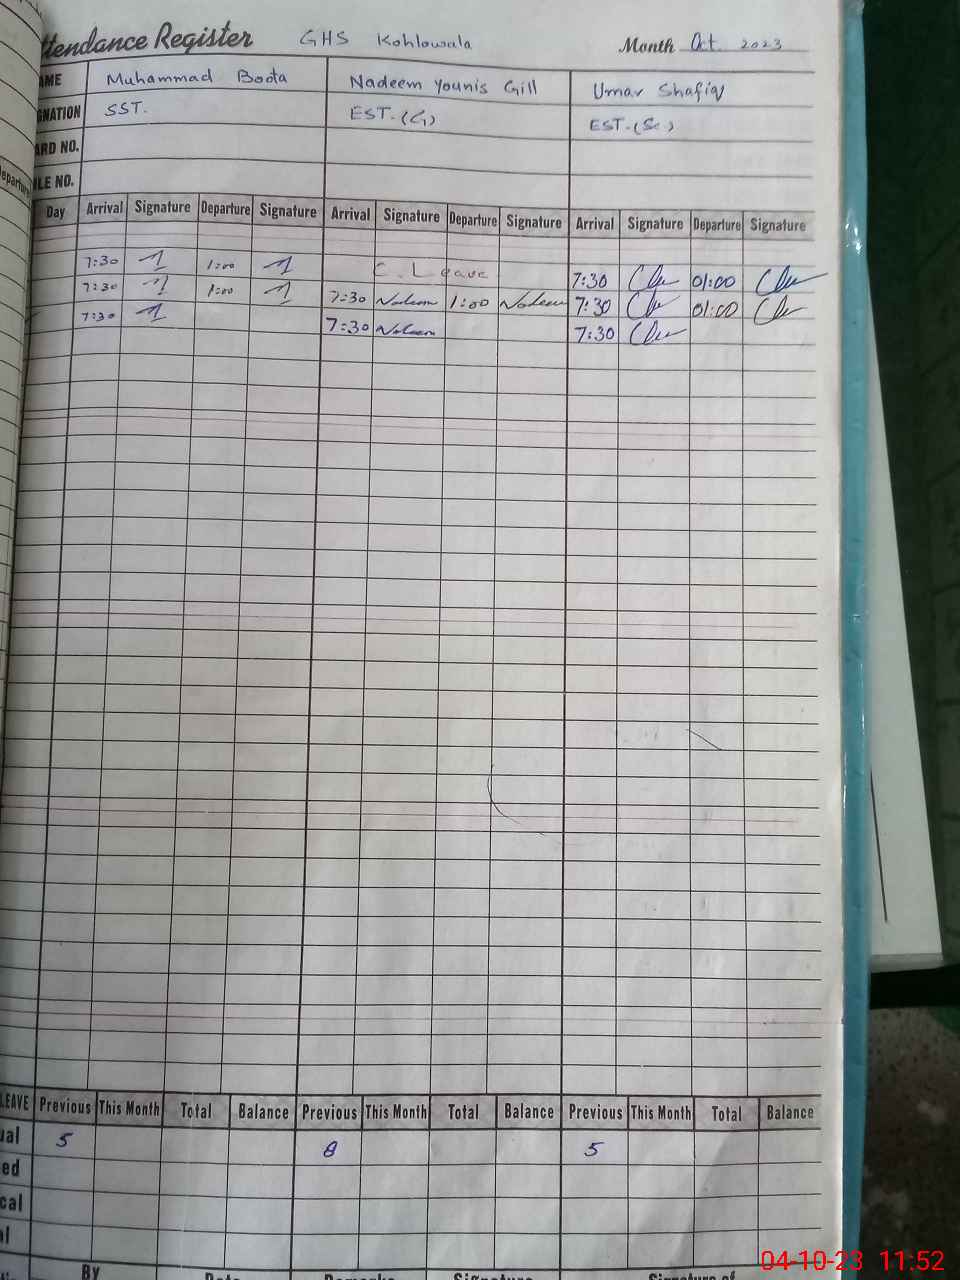 ttendance Register GHS Kohlowala Month Oct. 2023
AME Muhammad Boota Nadeem Younis Gill Umar Shafiq
GNATION SST. EST.(G) EST.(Sc)
ARD NO.
ILE NO.
Departure
Day Arrival Signature Departure Signature Arrival Signature Departure Signature Arrival Signature Departure Signature
7:30 1:00 C. Leave 7:30 01:00
7:30 1:00 7:30 Nadeem 1:00 Nadeem 7:30 01:00
7:30 7:30 Nadeem 7:30
LEAVE Previous This Month Total Balance Previous This Month Total Balance Previous This Month Total Balance
ual 5 8 5
ed
cal
l
By Date Remarks Signature Signature of
04-10-23 11:52